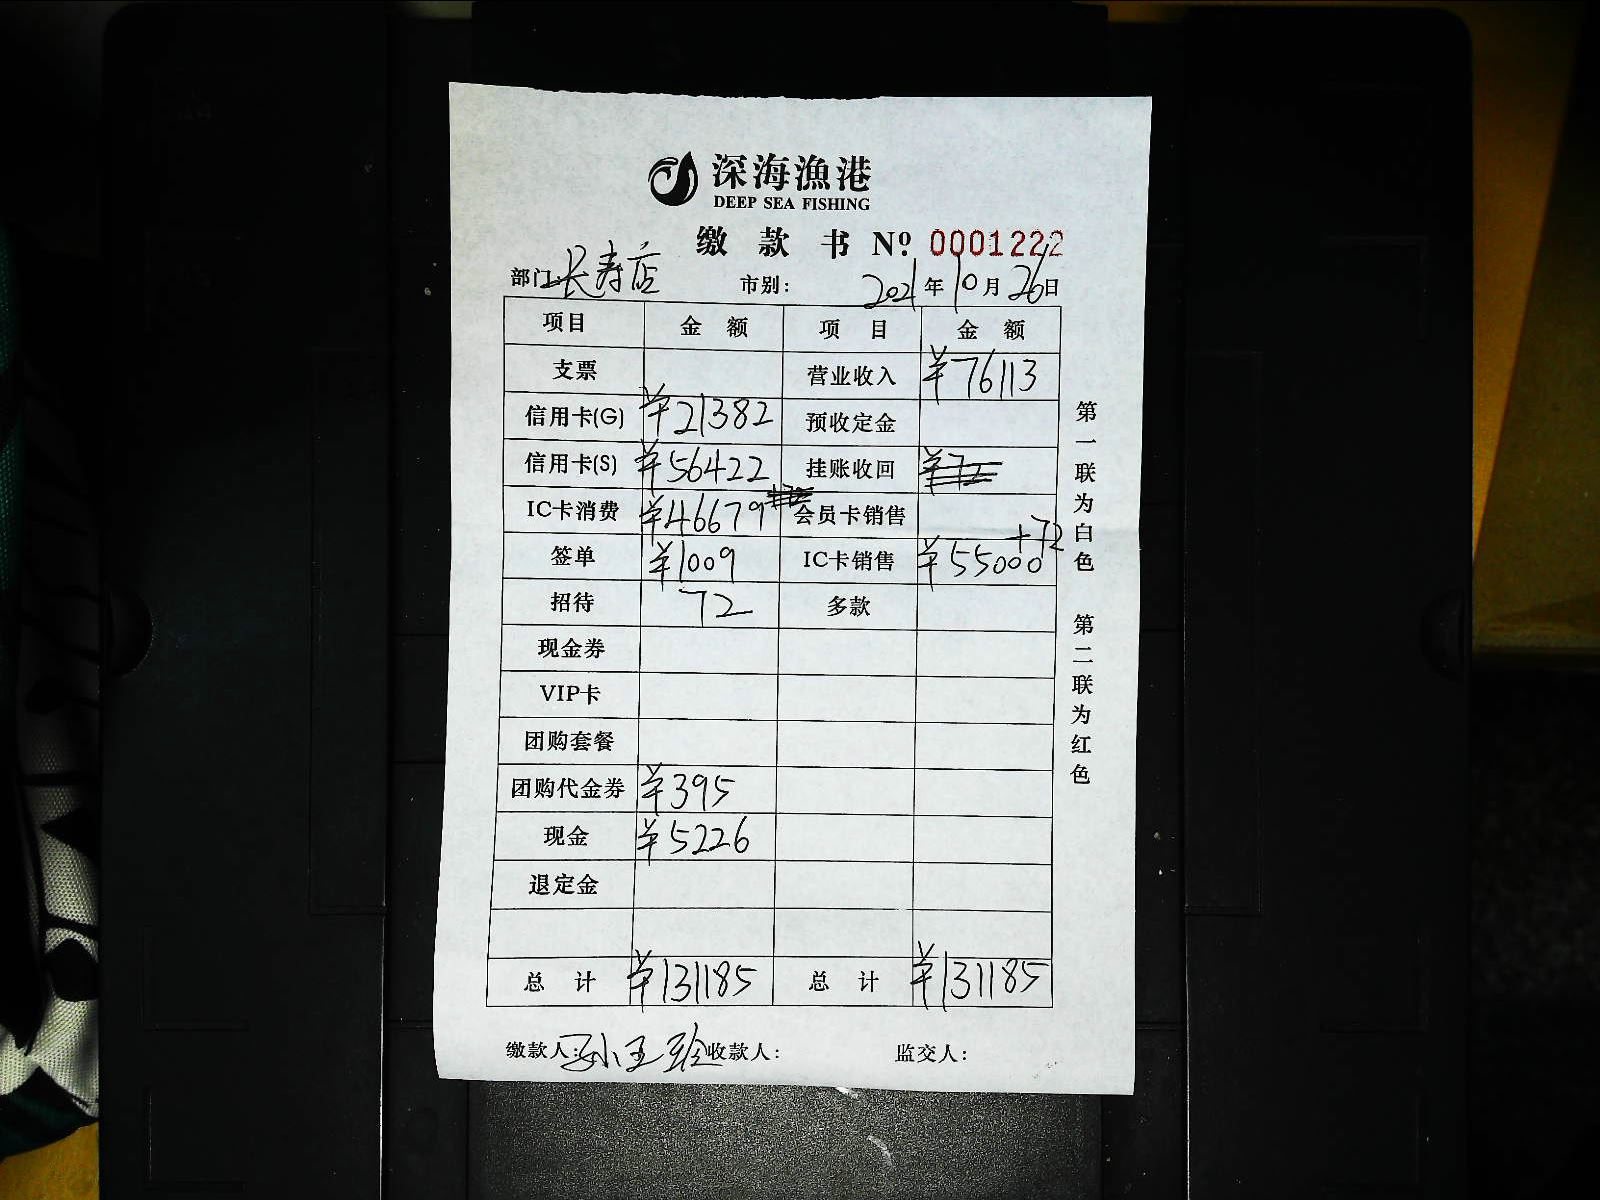 深海漁港
DEEP SEA FISHING
缴款书 Nº 0001222
部门:长寿店 市别: 2021年10月26日
项目 金额 项目 金额
支票 营业收入 ¥76113
信用卡(G) ¥21382 预收定金
信用卡(S) ¥56422 挂账收回 ¥72
IC卡消费 ¥46679 会员卡销售
签单 ¥1009 IC卡销售 ¥55000 +72
招待 72 多款
现金券
VIP卡
团购套餐
团购代金券 ¥395
现金 ¥5226
退定金
总计 ¥131185 总计 ¥131185
缴款人:孙玉玲 收款人: 监交人:
第一联为白色 第二联为红色